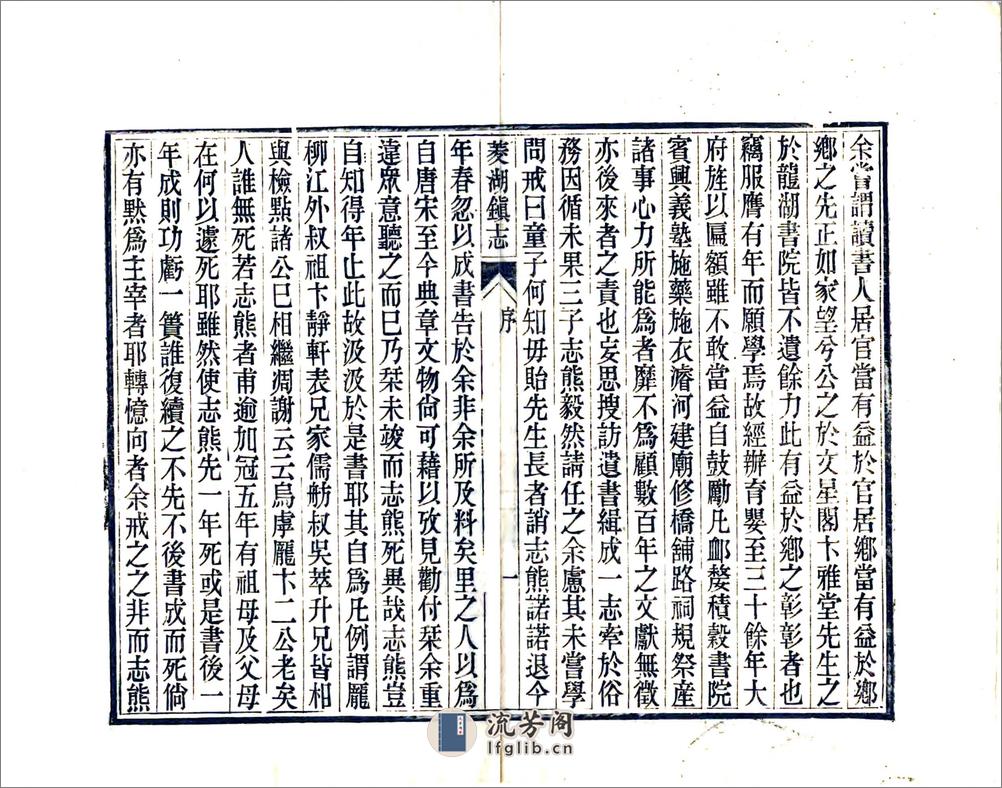 余嘗謂讀書人居官當有益於官居鄉當有益於鄉
鄉之先正如家望兮公之於文星閣卞雅堂先生之
於龍湖書院皆不遺餘力此有益於鄉之彰彰者也
竊服膺有年而願學焉故經辦育嬰至三十餘年大
府旌以匾額雖不敢當益自鼓勵凡卹嫠積穀書院
賓興義塾施藥施衣濬河建廟修橋舖路祠規祭産
諸事心力所能爲者靡不爲顧數百年之文獻無徵
亦後來者之責也妄思搜訪遺書緝成一志牽於俗
務因循未果三子志熊毅然請任之余慮其未嘗學
問戒曰童子何知毋貽先生長者誚志熊諾諾退今
菱湖鎭志
序
一
年春忽以成書告於余非余所及料矣里之人以爲
自唐宋至今典章文物尙可藉以攷見勸付栞余重
違眾意聽之而巳乃栞未竣而志熊死異哉志熊豈
自知得年止此故汲汲於是書耶其自爲凡例謂龎
柳江外叔祖卞靜軒表兄家儒舫叔吳萃升兄皆相
與檢點諸公巳相繼凋謝云云烏虖龎卞二公老矣
人誰無死若志熊者甫逾加冠五年有祖母及父母
在何以遽死耶雖然使志熊先一年死或是書後一
年成則功虧一簣誰復續之不先不後書成而死倘
亦有黙爲主宰者耶轉憶向者余戒之之非而志熊
流芳阁
lfglib.cn